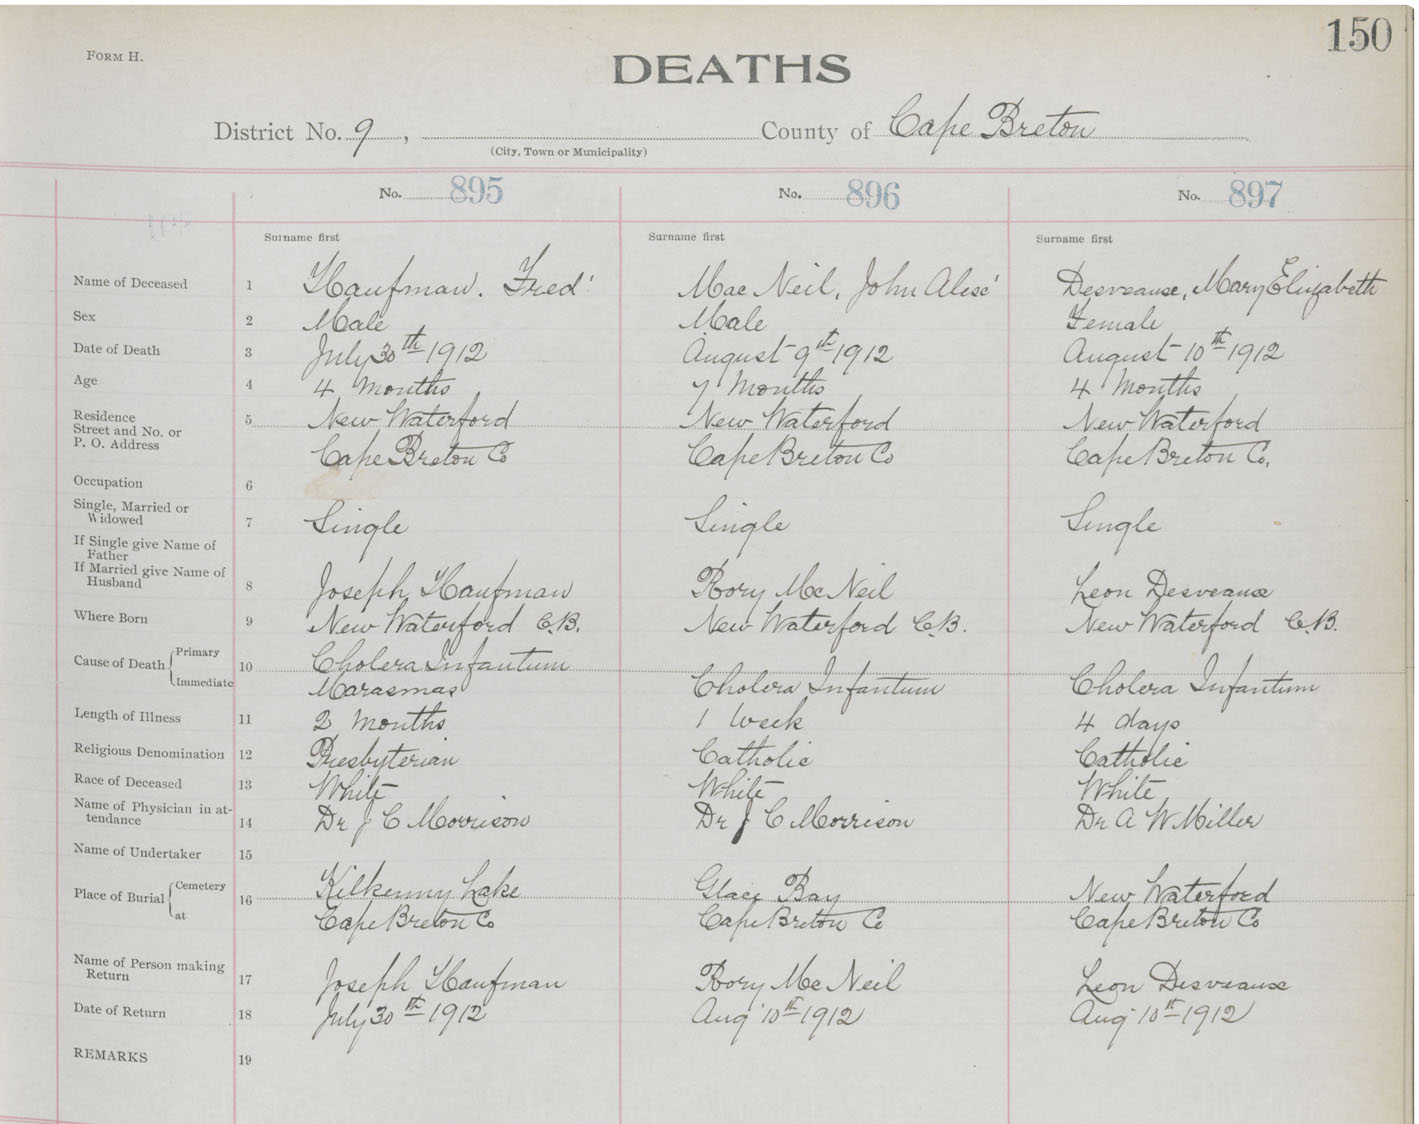 150
FORM H.
DEATHS
District No. 9, County of Cape Breton
(City, Town or Municipality)
No. 895 No. 896 No. 897
Surname first Surname first Surname first
Name of Deceased 1 Kaufman. Fred' Mac Neil, John Alex' Desveaux, Mary Elizabeth
Sex 2 Male Male Female
Date of Death 3 July 30th 1912 August 9th 1912 August 10th 1912
Age 4 4 Months 7 Months 4 Months
Residence
Street and No. or 5 New Waterford New Waterford New Waterford
P. O. Address Cape Breton Co Cape Breton Co Cape Breton Co,
Occupation 6
Single, Married or
Widowed 7 Single Single Single
If Single give Name of
Father
If Married give Name of
Husband 8 Joseph Kaufman Rory McNeil Leon Desveaux
Where Born 9 New Waterford C.B. New Waterford C.B. New Waterford C.B.
Cause of Death Primary 10 Cholera Infantum
Immediate Marasmas Cholera Infantum Cholera Infantum
Length of Illness 11 2 Months 1 Week 4 days
Religious Denomination 12 Presbyterian Catholic Catholic
Race of Deceased 13 White White White
Name of Physician in at-
tendance 14 Dr J C Morrison Dr J C Morrison Dr A W Miller
Name of Undertaker 15
Place of Burial Cemetery 16 Kilkenny Lake Glace Bay New Waterford
at Cape Breton Co Cape Breton Co Cape Breton Co
Name of Person making
Return 17 Joseph Kaufman Rory McNeil Leon Desveaux
Date of Return 18 July 30th 1912 Aug' 10th 1912 Aug' 10th 1912
REMARKS 19